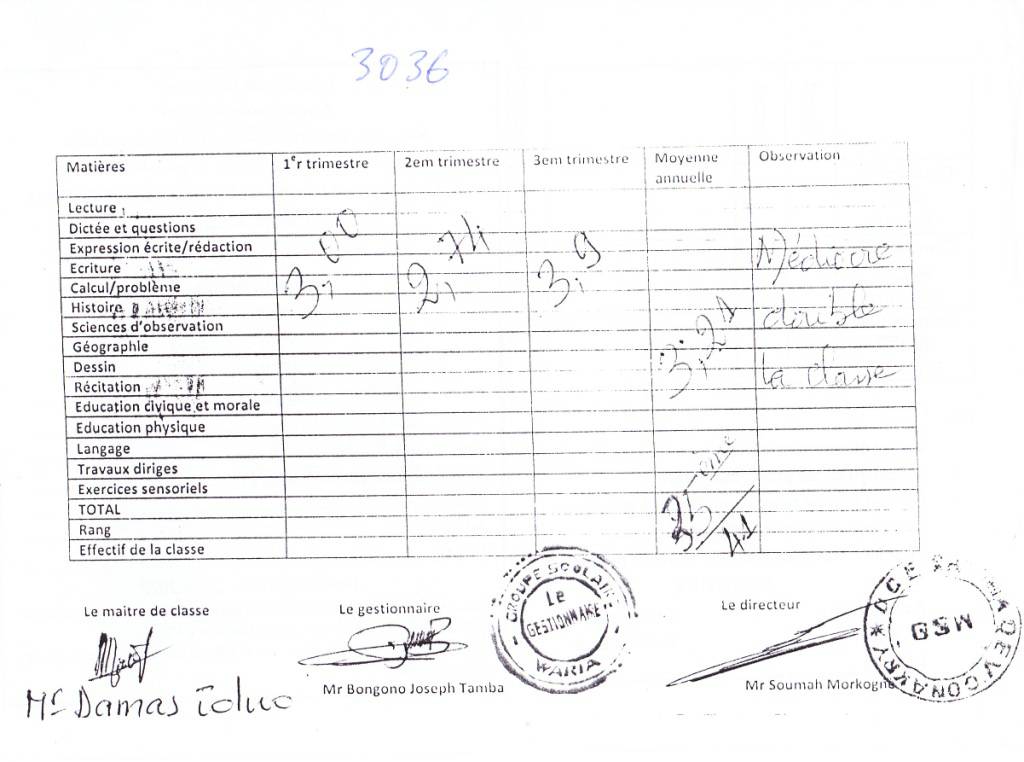 3036
Matières 1er trimestre 2em trimestre 3em trimestre Moyenne annuelle Observation
Lecture
Dictée et questions
Expression écrite/rédaction
Ecriture
Calcul/problème
Histoire
Sciences d'observation
Géographie
Dessin
Récitation
Education civique et morale
Education physique
Langage
Travaux diriges
Exercices sensoriels
TOTAL
Rang
Effectif de la classe
3,00 2,74 3,9 3,21
Médiocre
double
la classe
ème
41
Le maitre de classe Le gestionnaire Le directeur
GROUPE SCOLAIRE
LE
GESTIONNAIRE
WARIA
MSD
CONAKRY
Mr Bongono Joseph Tamba Mr Soumah Morkogne
Mr Damas